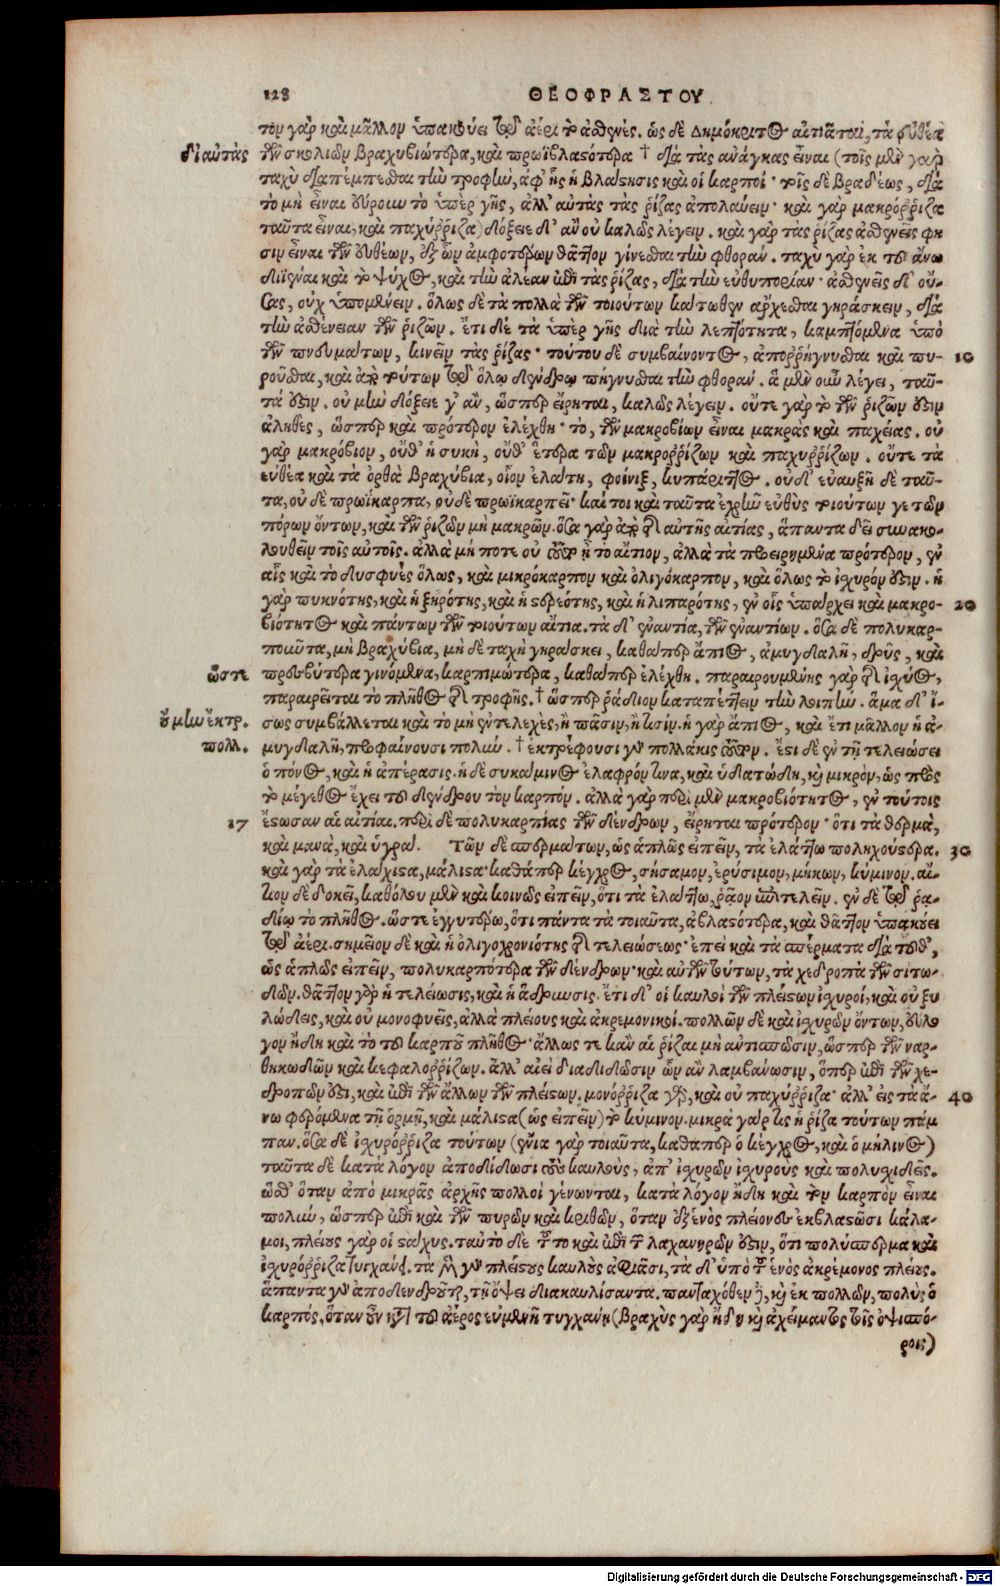 128 ΘΕΟΦΡΑΣΤΟΥ
τον γὰρ καὶ μᾶλλον ὑπακούει τῷ ἀέρι τὸ ἀσθενές. ὡς δὲ Δημόκριτος αἰτιᾶται, τὰ εὐθέα
δι αὐτὰς
τῶν σκολιῶν βραχυβιώτερα, καὶ πρωϊβλαστότερα † διὰ τὰς ἀνάγκας εἶναι (τοῖς μὲν γὰρ
ταχὺ διαπέμπεσθαι τὴν τροφὴν, ἀφ' ἧς ἡ βλάστησις καὶ οἱ καρποί· τοῖς δὲ βραδέως, διὰ
τὸ μὴ εἶναι εὔρουν τὸ ὑπὲρ γῆς, ἀλλ' αὐτὰς τὰς ῥίζας ἀπολαύειν· καὶ γὰρ μακρόρριζα
ταῦτα εἶναι, καὶ παχύρριζα) δόξειε δ' ἂν οὐ καλῶς λέγειν. καὶ γὰρ τὰς ῥίζας ἀσθενεῖς φη
σιν εἶναι τῶν εὐθέων, ἐξ ὧν ἀμφοτέρων θᾶττον γίνεσθαι τὴν φθοράν. ταχὺ γὰρ ἐκ τοῦ ἄνω
διϊέναι καὶ τὸ ψύχος, καὶ τὴν ἀλέαν ἐπὶ τὰς ῥίζας, διὰ τὴν εὐθυπορίαν· ἀσθενεῖς δ' οὔ-
σας, οὐχ ὑπομένειν. ὅλως δὲ τὰ πολλὰ τῶν τοιούτων κάτωθεν ἄρχεσθαι γηράσκειν, διὰ
τὴν ἀσθένειαν τῶν ῥιζῶν. ἔτι δὲ τὰ ὑπὲρ γῆς διὰ τὴν λεπτότητα, καμπτόμενα ὑπὸ
τῶν πνευμάτων, κινεῖν τὰς ῥίζας· τούτου δὲ συμβαίνοντος, ἀπορρήγνυσθαι καὶ πυ- 10
ροῦσθαι, καὶ ἀπὸ τούτων τῷ ὅλῳ δένδρῳ πήγνυσθαι τὴν φθοράν. ἃ μὲν οὖν λέγει, ταῦ-
τά ἐστιν. οὐ μὴν δόξειε γ' ἂν, ὥσπερ εἴρηται, καλῶς λέγειν. οὔτε γὰρ τὸ τῶν ῥιζῶν ἐστιν
ἀληθὲς, ὥσπερ καὶ πρότερον ἐλέχθη· τὸ, τῶν μακροβίων εἶναι μακρὰς καὶ παχείας. οὐ
γὰρ μακρόβιον, οὔθ' ἡ συκῆ, οὔθ' ἕτερα τῶν μακρορρίζων καὶ παχυρρίζων. οὔτε τὰ
εὐθέα καὶ τὰ ὀρθὰ βραχύβια, οἷον ἐλάτη, φοίνιξ, κυπάριττος. οὐδ' εὐαυξῆ δὲ ταῦ-
τα, οὐ δὲ πρωΐκαρπα, οὐδὲ πρωϊκαρπεῖ· καί τοι καὶ ταῦτα ἐχρῆν εὐθὺς τοιούτων γε τῶν
πόρων ὄντων, καὶ τῶν ῥιζῶν μὴ μακρῶν. ὅσα γὰρ ἀπὸ τῆς αὐτῆς αἰτίας, ἅπαντα δεῖ συνακο-
λουθεῖν τοῖς αὐτοῖς. ἀλλὰ μή ποτε οὐ τοῦτο ᾖ τὸ αἴτιον, ἀλλὰ τὰ προειρημένα πρότερον, ἐν
αἷς καὶ τὸ δυσφυὲς ὅλως, καὶ μικρόκαρπον καὶ ὀλιγόκαρπον, καὶ ὅλως τὸ ἰσχυρόν ἐστιν. ἡ
γὰρ πυκνότης, καὶ ἡ ξηρότης, καὶ ἡ στερεότης, καὶ ἡ λιπαρότης, ἐν οἷς ὑπάρχει καὶ μακρο- 20
βιότητος καὶ πάντων τῶν τοιούτων αἴτια. τὰ δ' ἐναντία, τῶν ἐναντίων. ὅσα δὲ πολυκαρ-
ποῦντα, μὴ βραχύβια, μὴ δὲ ταχὴ γηράσκει, καθάπερ ἄπιος, ἀμυγδαλῆ, δρῦς, καὶ
ὥστε
πρεσβύτερα γινόμενα, καρπιμώτερα, καθάπερ ἐλέχθη. παραιρουμένης γὰρ τῆς ἰσχύος,
παραιρεῖται τὸ πλῆθος τῆς τροφῆς. † ὥσπερ ῥᾴδιον καταπέττειν τὴν λοιπήν. ἅμα δ' ἴ-
οὐ μὴν ἐκτρ.
σως συμβάλλεται καὶ τὸ μὴ ἐντελεχὲς, ἢ πᾶσιν, ἤ τισίν. ἡ γὰρ ἄπιος, καὶ ἔτι μᾶλλον ἡ ἀ-
πολλ.
μυγδαλῆ, προφαίνουσι πολύν. † ἐκτρέφουσι γοῦν πολλάκις αὐτόν. ἔστι δὲ ἐν τῇ τελειώσει
ὁ πόνος, καὶ ἡ ἀπέρασις. ἡ δὲ συκάμινος ἐλαφρόν τινα, καὶ ὑδατώδη, καὶ μικρὸν, ὡς πρὸς
τὸ μέγεθος ἔχει τοῦ δένδρου τὸν καρπόν. ἀλλὰ γὰρ περὶ μὲν μακροβιότητος, ἐν τούτοις
17
ἔστωσαν αἱ αἰτίαι. περὶ δὲ πολυκαρπίας τῶν δένδρων, εἴρηται πρότερον· ὅτι τὰ θερμὰ,
καὶ μανὰ, καὶ ὑγρά. Τῶν δὲ σπερμάτων, ὡς ἁπλῶς εἰπεῖν, τὰ ἐλάττω πολυχούστερα. 30
καὶ γὰρ τὰ ἐλάχιστα, μάλιστα· καθάπερ κέγχρος, σήσαμον, ἐρύσιμον, μήκων, κύμινον. αἴ-
τιον δὲ δοκεῖ, καθόλου μὲν καὶ κοινῶς εἰπεῖν, ὅτι τὰ ἐλάττω, ῥᾷον ἐπιτελεῖν. ἐν δὲ τῷ ῥᾳ-
δίῳ τὸ πλῆθος. ὥστε ἐγγυτέρω, ὅτι πάντα τὰ τοιαῦτα, ἀβλαστότερα, καὶ θᾶττον ὑπακούει
τῷ ἀέρι. σημεῖον δὲ καὶ ἡ ὀλιγοχρονιότης τῆς τελειώσεως· ἐπεὶ καὶ τὰ σπέρματα διὰ τοῦθ',
ὡς ἁπλῶς εἰπεῖν, πολυκαρπότερα τῶν δένδρων· καὶ αὐτῶν τούτων, τὰ χεδροπὰ τῶν σιτω-
δῶν. θᾶττον γὰρ ἡ τελείωσις, καὶ ἡ ἅδρυνσις. ἔτι δ' οἱ καυλοὶ τῶν πλείστων ἰσχυροί, καὶ οὐ ξυ
λώδεις, καὶ οὐ μονοφυεῖς, ἀλλὰ πλείους καὶ ἀκρεμονικοί. πολλῶν δὲ καὶ ἰσχυρῶν ὄντων, εὔλο
γον ἤδη καὶ τὸ τοῦ καρποῦ πλῆθος· ἄλλως τε κἂν αἱ ῥίζαι μὴ ἀντισπῶσιν, ὥσπερ τῶν ναρ-
θηκωδῶν καὶ κεφαλορρίζων. ἀλλ' αἰεὶ διαδιδῶσιν ὧν ἂν λαμβάνωσιν, ὅπερ ἐπὶ τῶν χε-
δροπῶν ἐστι, καὶ ἐπὶ τῶν ἄλλων τῶν πλείστων, μονόρριζα γὰρ, καὶ οὐ παχύρριζα· ἀλλ' εἰς τὰ ἄ- 40
νω φερόμενα τῇ ὁρμῇ, καὶ μάλιστα (ὡς εἰπεῖν) τὸ κύμινον. μικρὰ γάρ τις ἡ ῥίζα τούτων πάμ
παν. ὅσα δὲ ἰσχυρόρριζα τούτων (ἔνια γὰρ τοιαῦτα, καθάπερ ὁ κέγχρος, καὶ ὁ μήλινος)
ταῦτα δὲ κατὰ λόγον ἀποδίδωσι τοὺς καυλοὺς, ἀπ' ἰσχυρῶν ἰσχυροὺς καὶ πολυσχιδεῖς.
ὥσθ' ὅταν ἀπὸ μικρᾶς ἀρχῆς πολλοὶ γένωνται, κατὰ λόγον ἤδη καὶ τὸν καρπὸν εἶναι
πολὺν, ὥσπερ ἐπὶ καὶ τῶν πυρῶν καὶ κριθῶν, ὅταν ἐξ ἑνὸς πλείονες ἐκβλαστῶσι κάλα-
μοι, πλείους γὰρ οἱ στάχυς. ταὐτὸ δὲ τοῦτο καὶ ἐπὶ τῶν λαχανηρῶν ἐστιν, ὅτι πολύσπερμα καὶ
ἰσχυρόρριζα τυγχάνει. τὰ μὲν γοῦν πλείστους καυλοὺς ἀφιᾶσι, τὰ δ' ὑπὸ τοῦ ἑνὸς ἀκρέμονος πλείους.
ἅπαντα γοῦν ἀποδενδροῦται, τῇ ὄψει διακαυλίσαντα. πανταχόθεν δὲ, καὶ ἐκ πολλῶν, πολὺς ὁ
καρπός. ὅταν οὖν καὶ τὰ τοῦ ἀέρος εὐμενῆ τυγχάνῃ (βραχὺς γὰρ ἤδη καὶ ἀχείμαντος τοῖς ὀψισπό-
ροις)
Digitalisierung gefördert durch die Deutsche Forschungsgemeinschaft - DFG